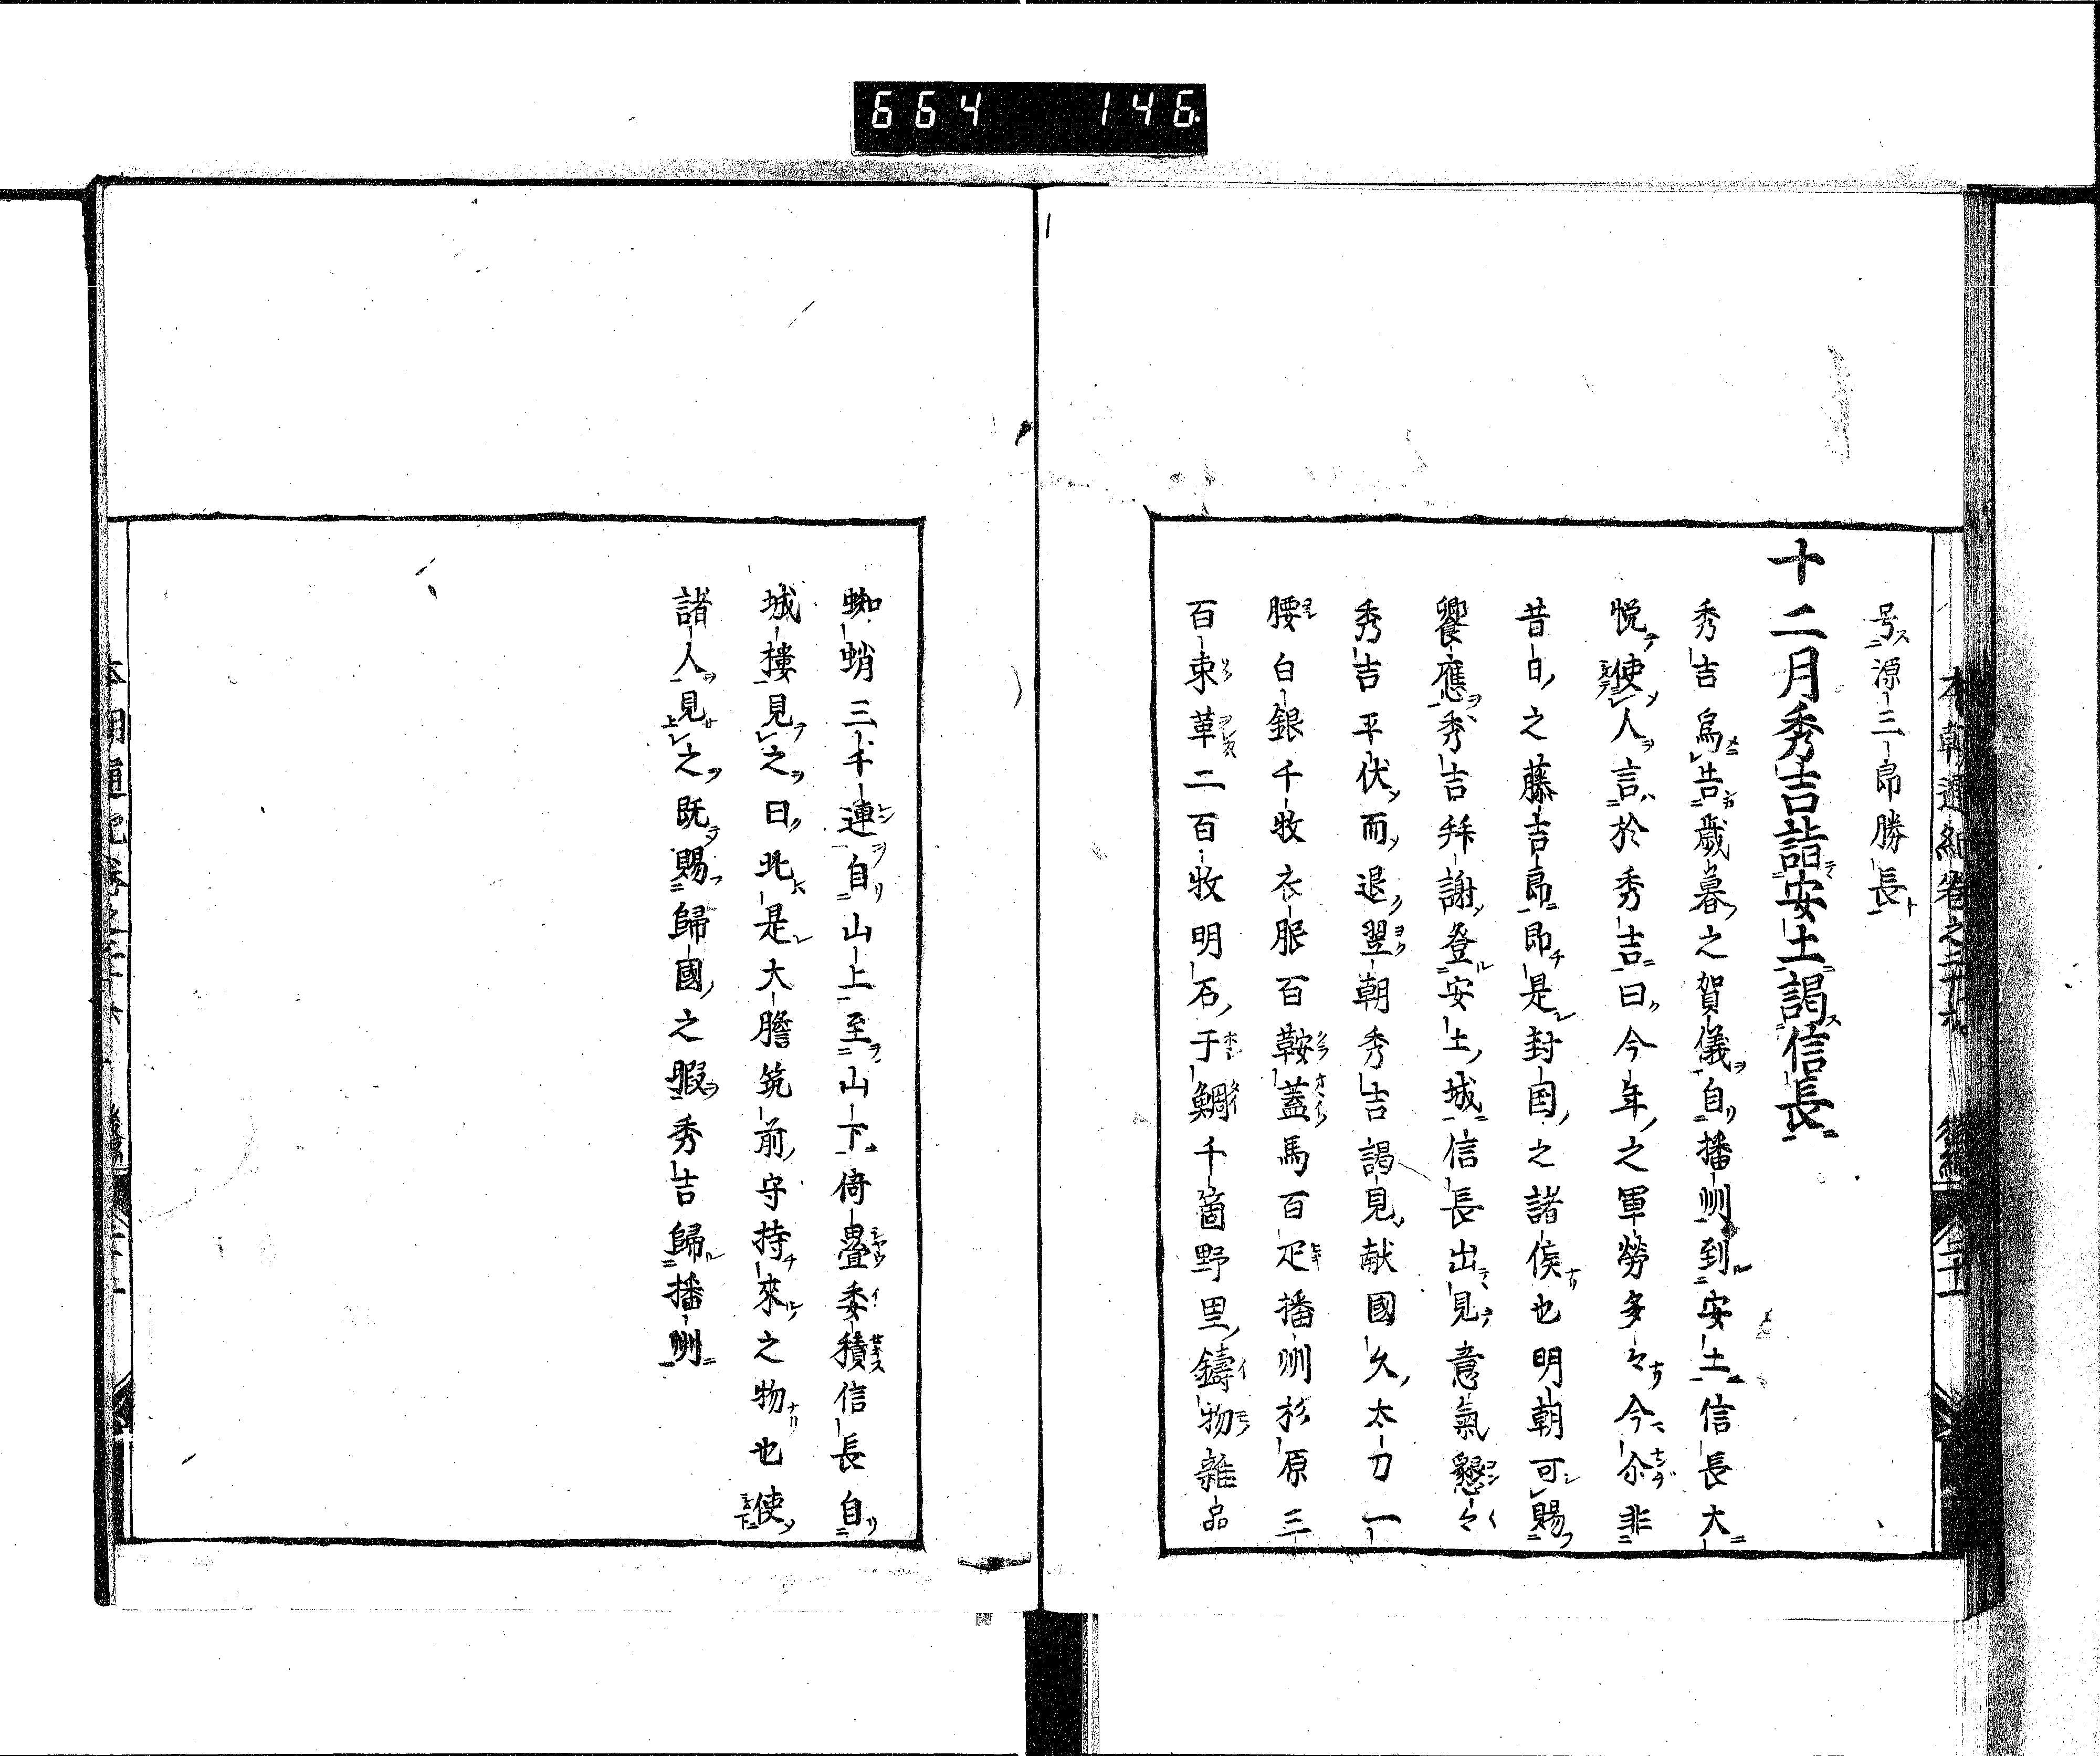 664 146
本朝通紀卷之二十六 後編 二十一
号源三郎勝長
十二月秀吉詣安土謁信長
秀吉爲告歳暮之賀儀自播州到安土信長大
悦使人言於秀吉曰今年之軍勞多々今尒非
昔日之藤吉郎即是封国之諸侯也明朝可賜
饗應秀吉拜謝登安土城信長出見意氣懇々
秀吉平伏而退翌朝秀吉謁見献國久太刀一
腰白銀千枚衣服百鞍蓋馬百疋播州杉原三
百束革二百枚明石干鯛千箇野里鑄物雜品
蜘蛸三千連自山上至山下倚疊委積信長自
城樓見之曰北是大膽筑前守持來之物也使
諸人見之既賜歸國之暇秀吉歸播州